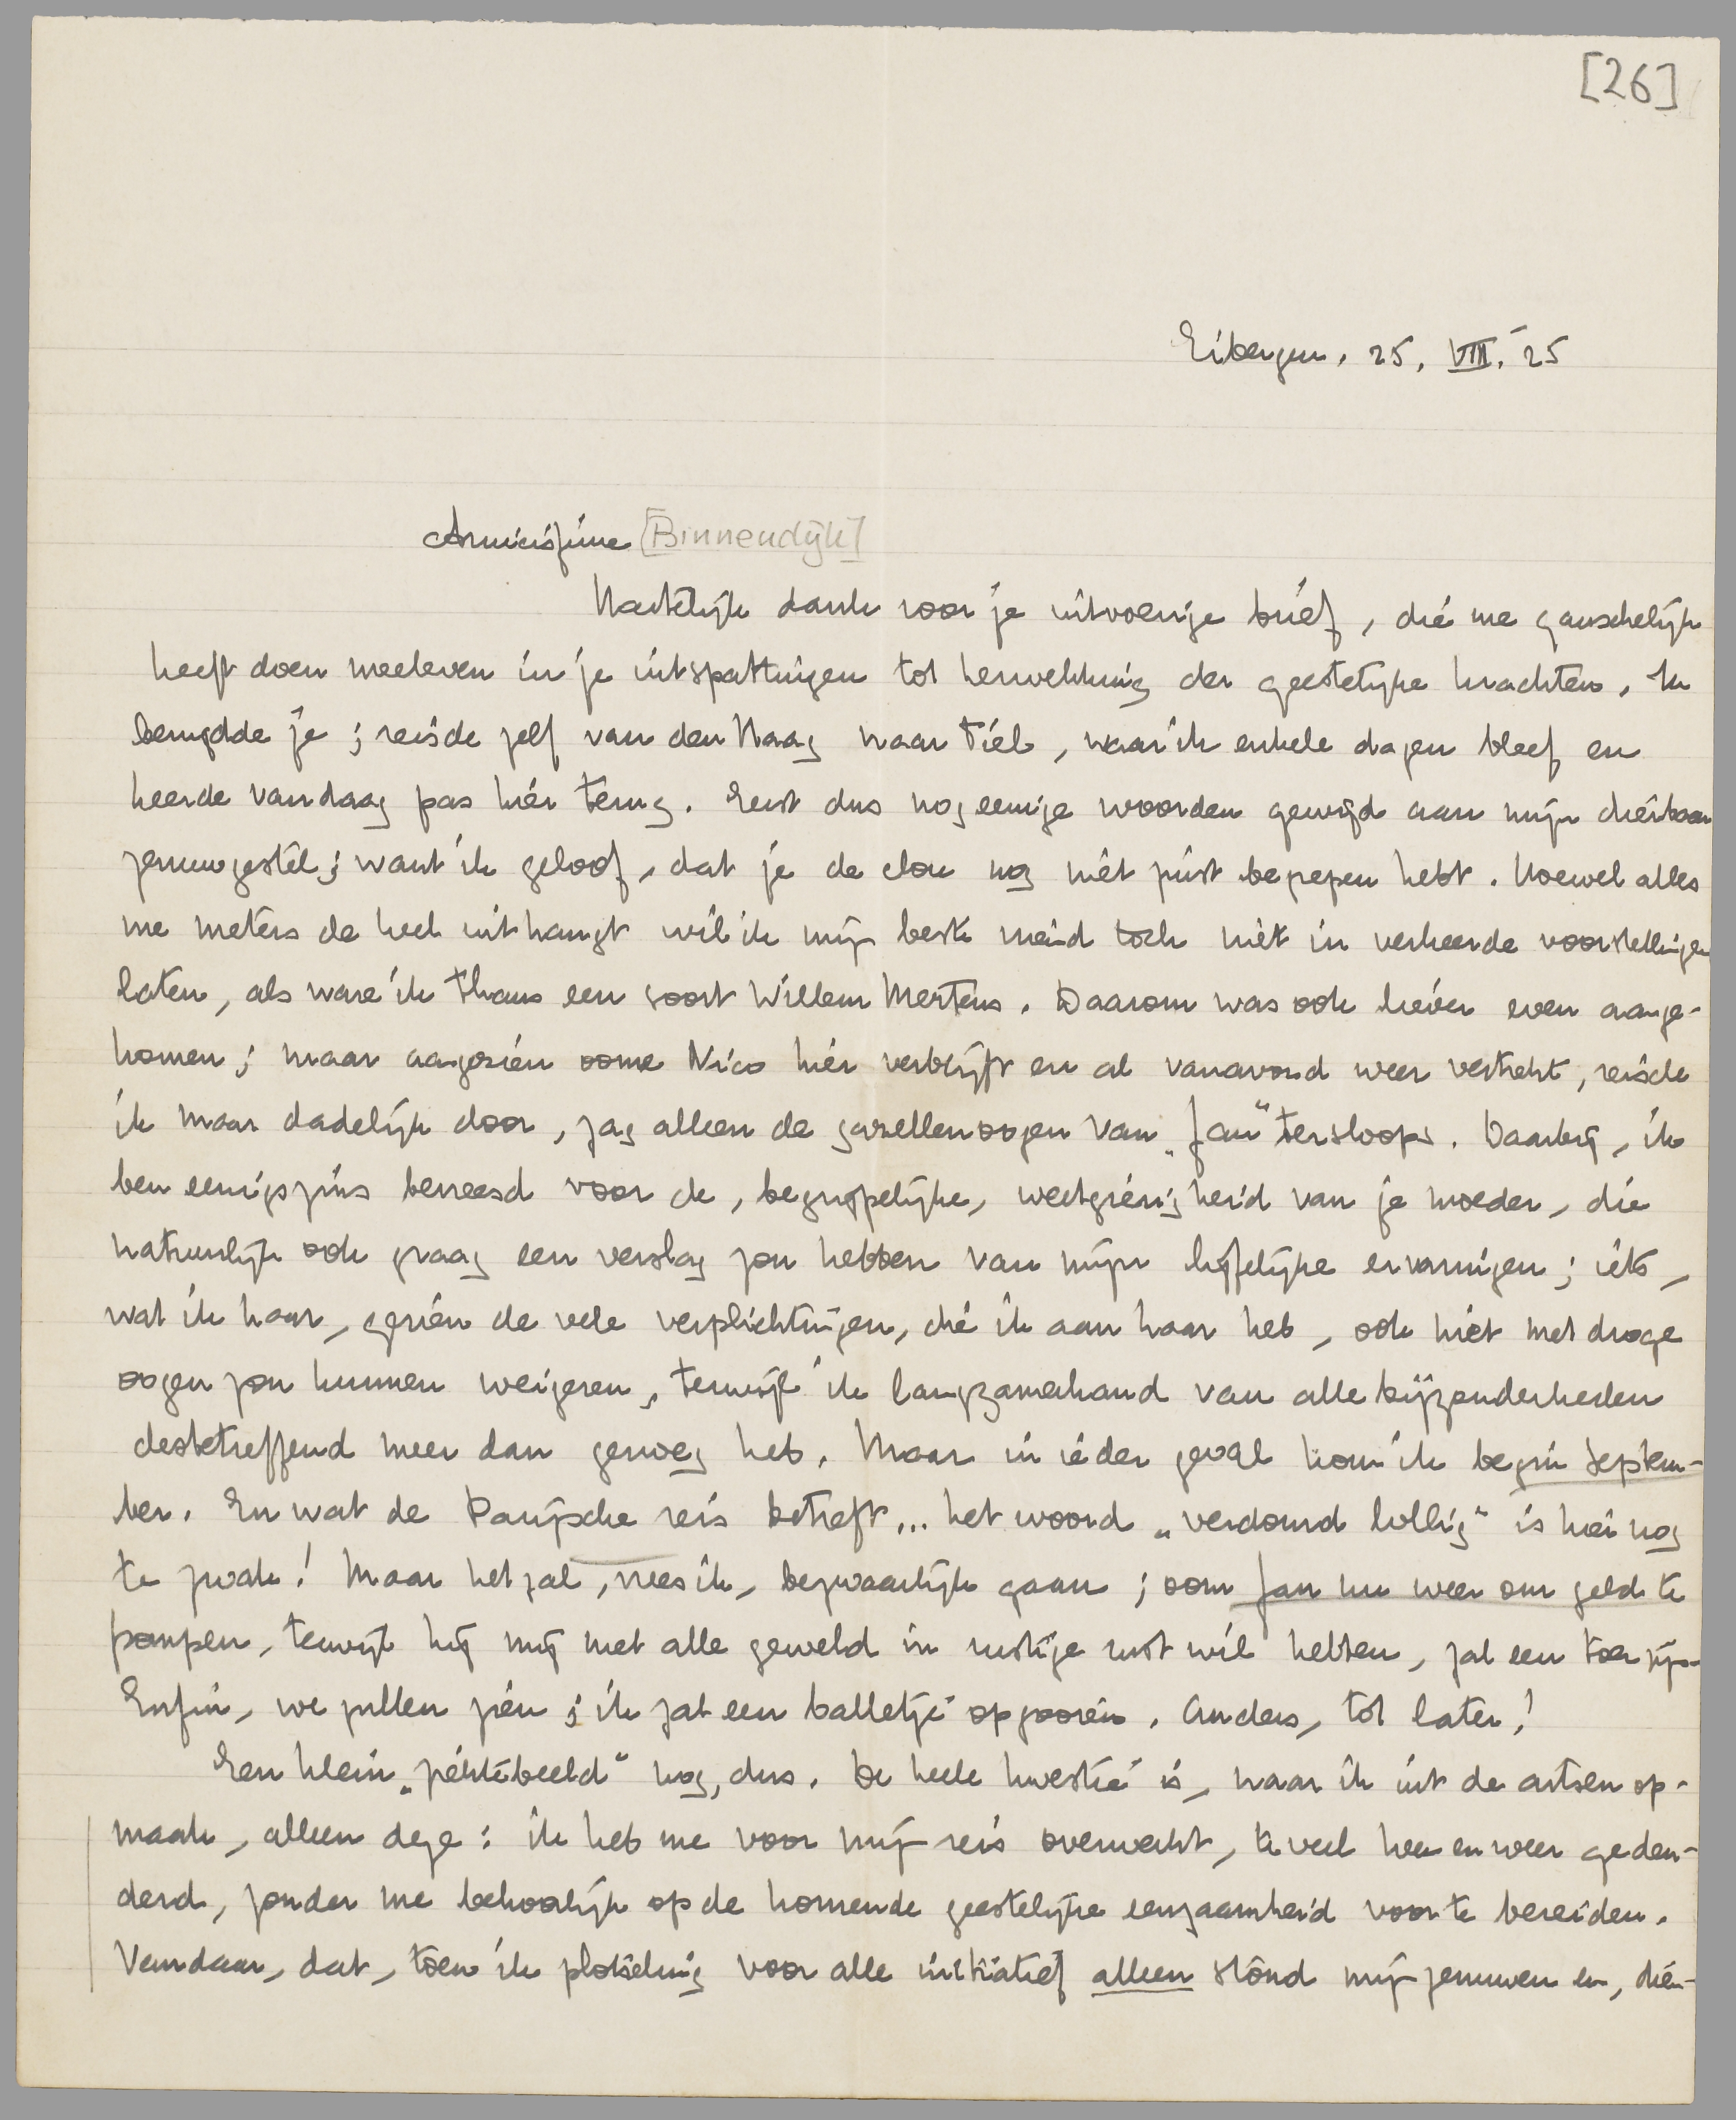 [26]
Eibergen, 25. VIII. 25
Amicissime [Binnendijk]
Hartelijk dank voor je uitvoerige brief, die me ganschelijk
heeft doen meeleven in je uitspattingen tot herwekking der geestelijke krachten. Ik
benijdde je; reisde zelf van den Haag naar Tiel, waar ik enkele dagen bleef en
keerde vandaag pas hier terug. Eerst dus nog eenige woorden gewijd aan mijn dierbaar
zenuwgestel; want ik geloof, dat je de clou nog niet juist begrepen hebt. Hoewel alles
me meters de keel uithangt wil ik mijn beste meid toch niet in verkeerde voorstellingen
laten, als ware ik thans een soort Willem Mertens. Daarom was ook liever even aange-
komen; maar aangezien oome Nico hier verblijft en al vanavond weer vertrekt, reisde
ik maar dadelijk door, zag alleen de gazellenoogen van „Jan" tersloops. Daarbij, ik
ben eenigszins bevreesd voor de, begrijpelijke, weetgierigheid van je moeder, die
natuurlijk ook graag een verslag zou hebben van mijn lijfelijke ervaringen; iets,
wat ik haar, gezien de vele verplichtingen, die ik aan haar heb, ook niet met droge
oogen zou kunnen weigeren, terwijl ik langzamerhand van alle bijzonderheden
desbetreffend meer dan genoeg heb. Maar in ieder geval kom ik begin Septem-
ber. En wat de Parijsche reis betreft... het woord „verdomd lollig" is hier nog
te zwak! Maar het zal, vrees ik, bezwaarlijk gaan; oom Jan nu weer om geld te
pompen, terwijl hij mij met alle geweld in rustige rust wil hebben, zal een toer zijn.
Enfin, we zullen zien; ik zal een balletje opgooien. Anders, tot later!
Een klein „ziektebeeld" nog, dus. De heele kwestie is, naar ik uit de artsen op-
maak, alleen deze: ik heb me voor mijn reis overwerkt, te veel heen en weer geden-
derd, zonder me behoorlijk op de komende geestelijke eenzaamheid voor te bereiden.
Vandaar, dat, toen ik plotseling voor alle initiatief alleen stond mijn zenuwen en, dien-